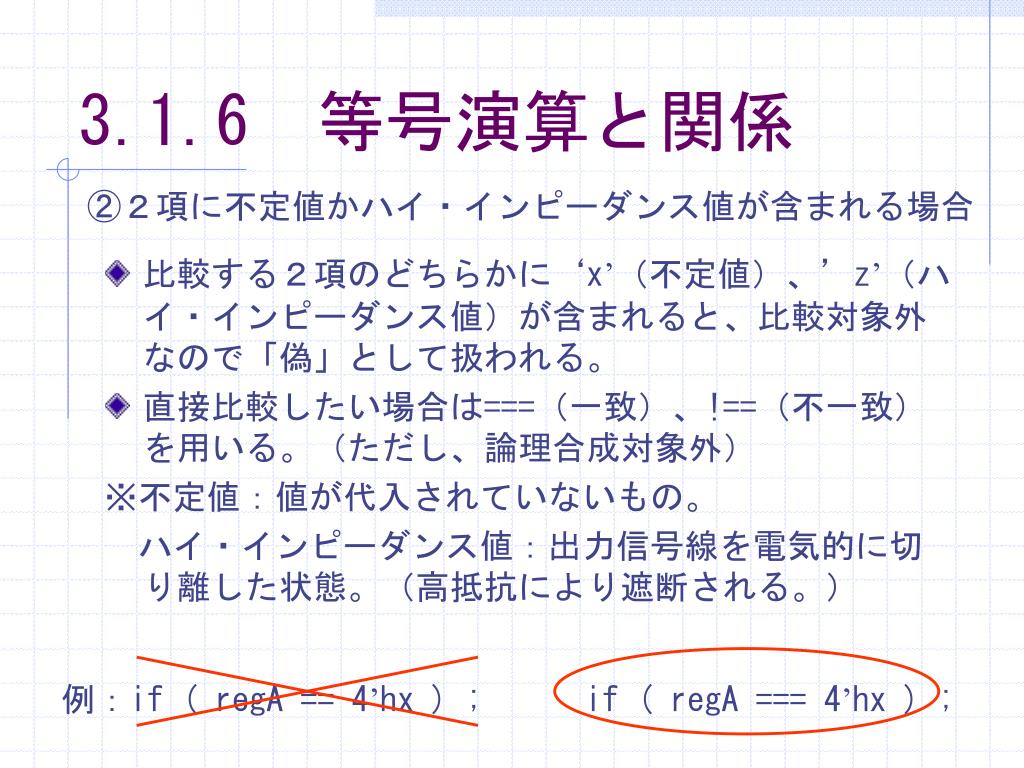 3.1.6　等号演算と関係
②２項に不定値かハイ・インピーダンス値が含まれる場合
比較する２項のどちらかに‘x’（不定値）、’z’（ハ
イ・インピーダンス値）が含まれると、比較対象外
なので「偽」として扱われる。
直接比較したい場合は===（一致）、!==（不一致）
を用いる。（ただし、論理合成対象外）
※不定値：値が代入されていないもの。
ハイ・インピーダンス値：出力信号線を電気的に切
り離した状態。（高抵抗により遮断される。）
例：if ( regA == 4’hx ) ;　　if ( regA === 4’hx ) ;